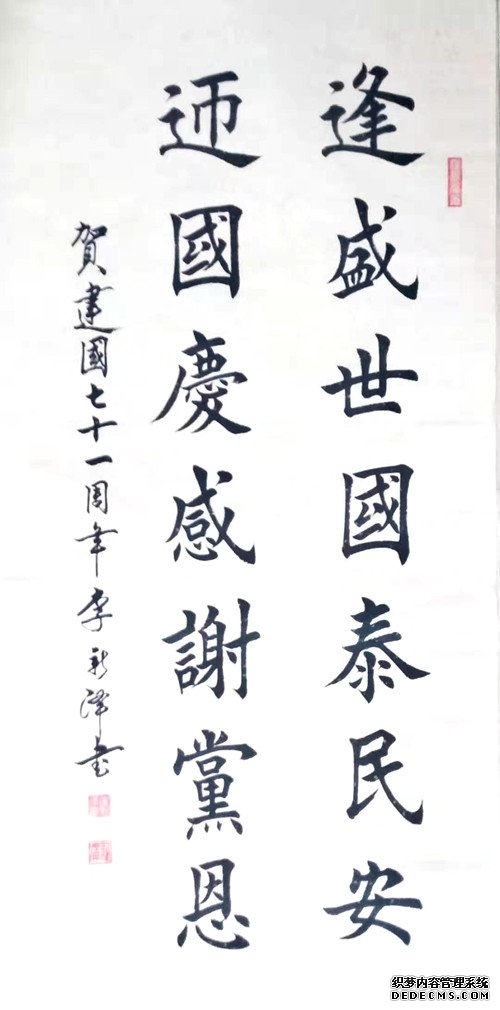 逢盛世國泰民安
迊國慶感謝黨恩
賀建國七十一周年李新泽書
织梦内容管理系统
DEDECMS.COM